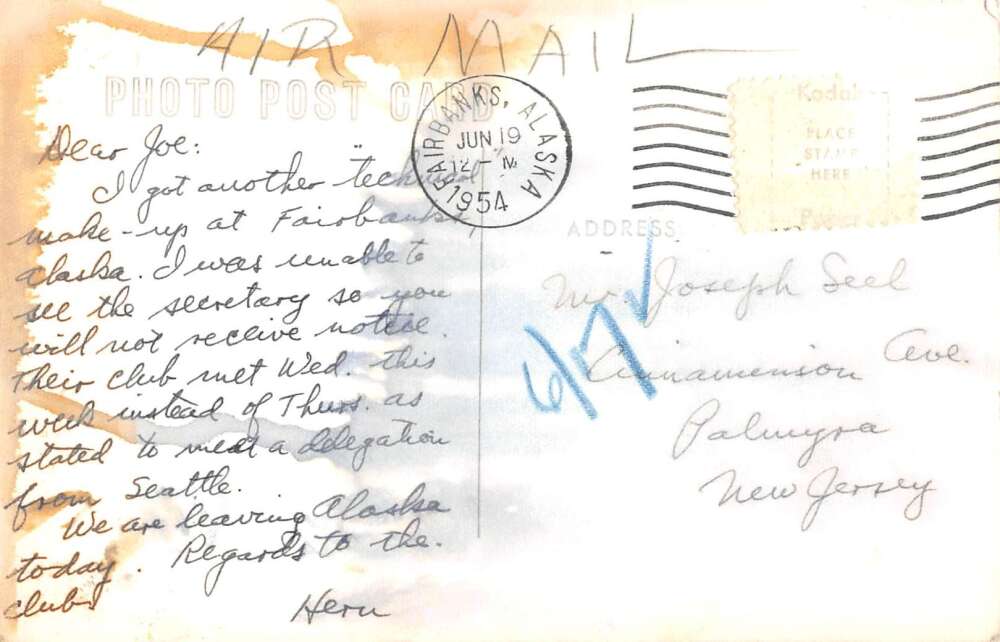 AIR MAIL
PHOTO POST CARD
FAIRBANKS, ALASKA
JUN 19
12 - M
1954
Kodak
PLACE
STAMP
HERE
Dear Joe:
I got another "technical
make-up at Fairbanks,
Alaska. I was unable to
see the secretary so you
will not receive notice.
Their club met Wed. this
week instead of Thurs. as
stated to meet a delegation
from Seattle.
We are leaving Alaska
today. Regards to the
club.
Heru
ADDRESS
6/17 ✓
Mr. Joseph Seel
Cinnaminson Ave.
Palmyra
New Jersey